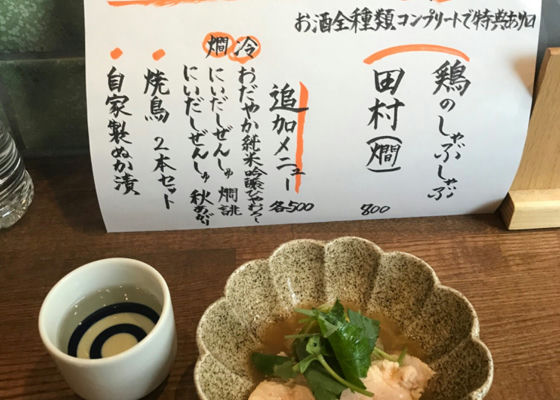 お酒全種類コンプリートで特典あり
鶏のしゃぶしゃぶ
田村(燗) 800
追加メニュー 各500
冷 おだやか純米吟醸ひやおろし
燗 にいだしぜんしゅ 燗誂
にいだしぜんしゅ 秋あがり
焼鳥 2本セット
自家製ぬか漬